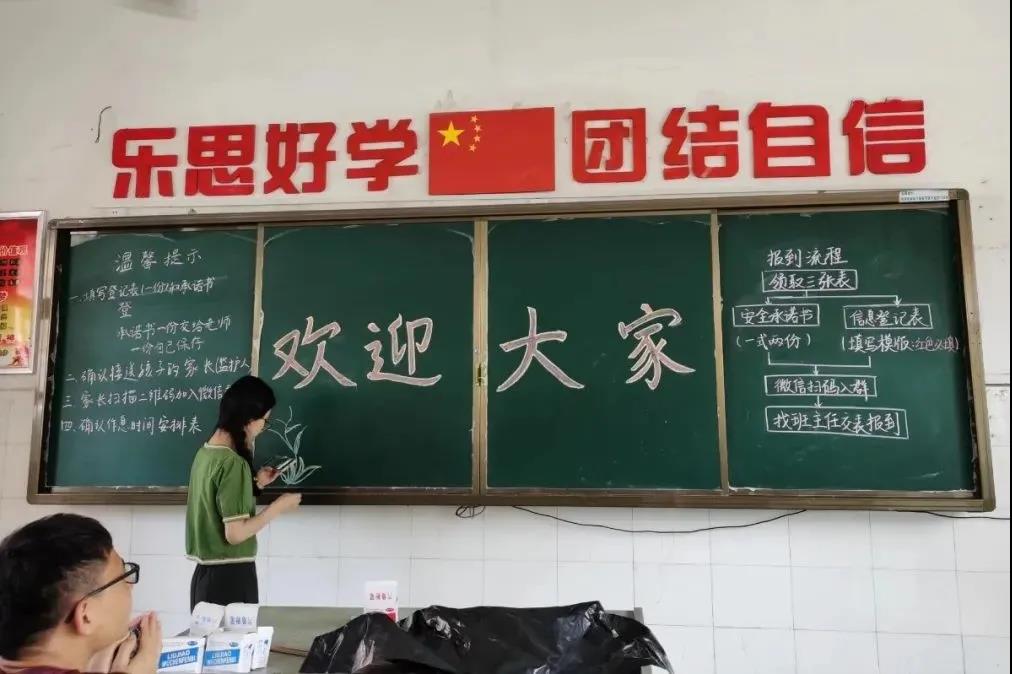 乐思好学 团结自信
价值观
温馨提示
一.填写登记表(一份)和承诺书
登
承诺书一份交给老师
一份自己保存
二.确认接送孩子的家长(监护人
三.家长扫描二维码加入微信
四.确认作息时间安排表
欢迎大家
报到流程
领取三张表
安全承诺书 信息登记表
(一式两份) (填写模版:红色必填)
微信扫码入群
找班主任交表报到
LIUJIAO
WUCHENFENBI
LIUJIAO
WUCHENFENBI